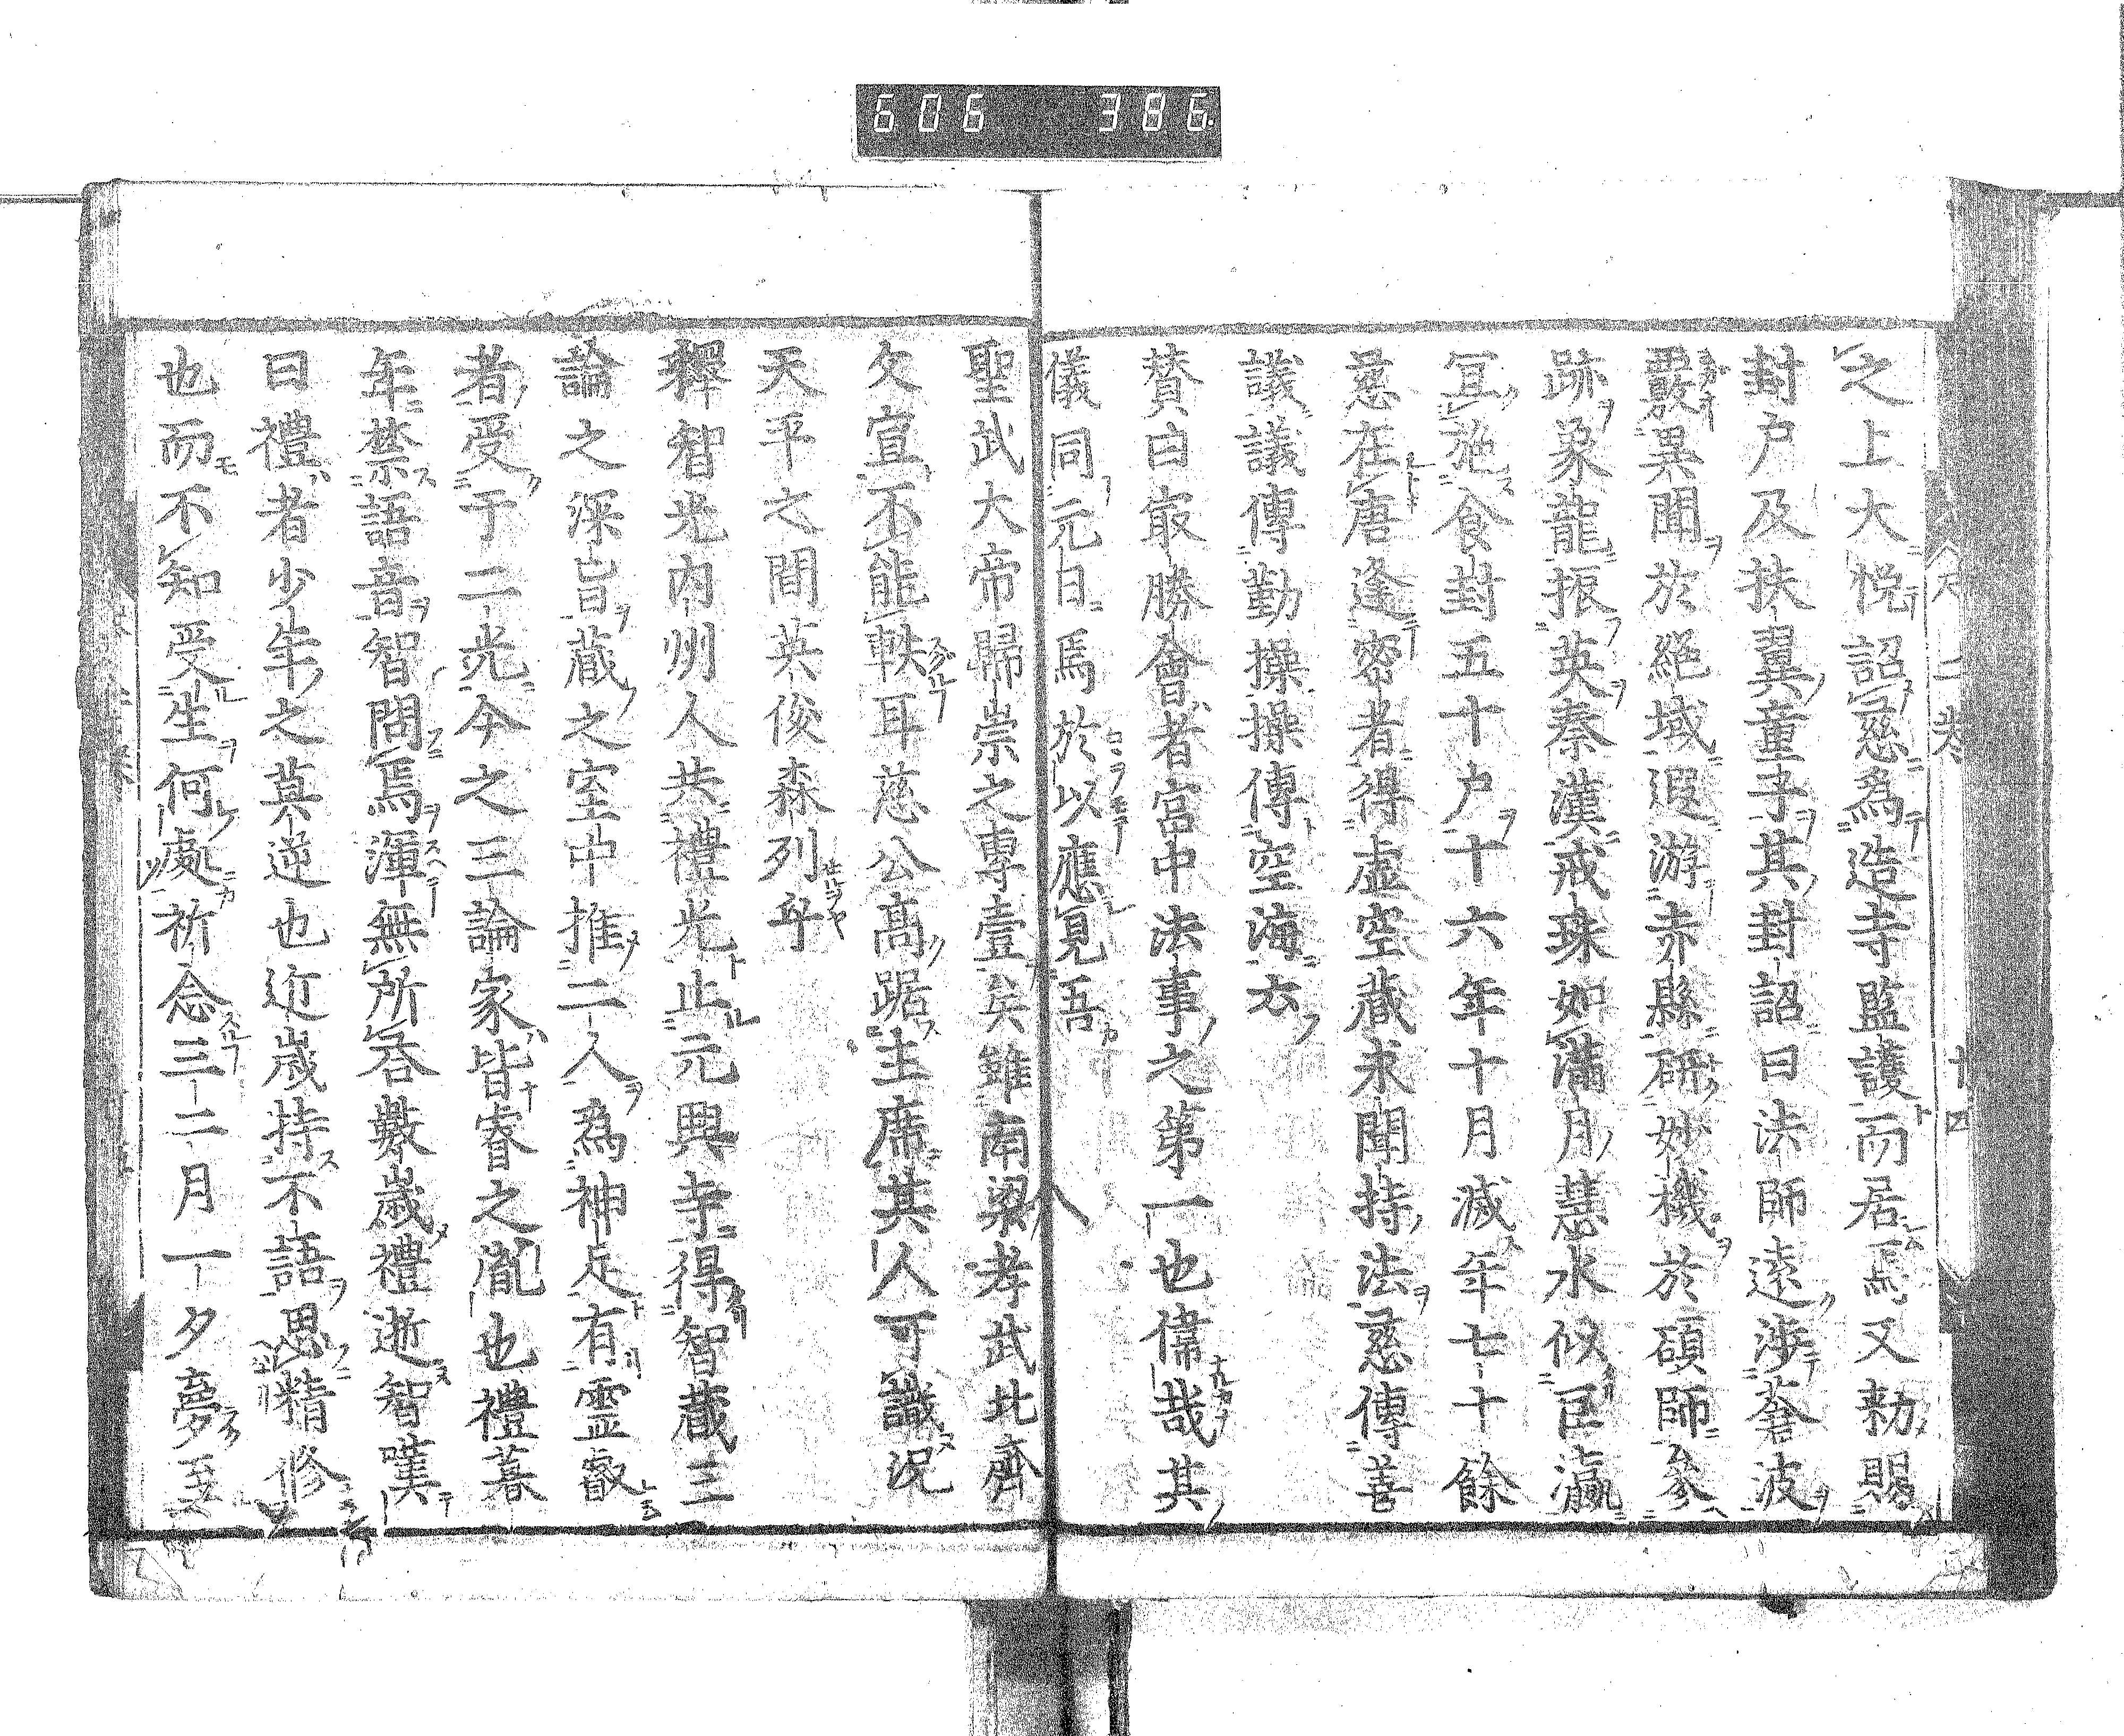 606 386
之上大悅詔慈為造寺監護而居焉又勅賜
封戶及扶翼童子其封詔曰法師遠涉蒼波
覈異聞於絕域遐游赤縣研妙機於碩師參
跡象龍振英秦漢戒珠如滿月慧水似巨瀛
冝施食封五十戶十六年十月滅年七十餘
慈在唐逢密者得虛空藏求聞持法慈傳善
議議傳勤操操傳空海云
賛曰㝡勝會者宮中法事之第一也偉哉其
儀同元日焉於以應見吾
聖武大帝歸崇之專壹矣雖南梁孝武北齊
文宣不能軼耳慈公高踞主席其人可識况
天平之間英俊森列乎
釋智光內州人共禮光止元興寺得智藏三
論之深旨藏之室中推二人為神足有霊叡
者受于二光今之三論家皆睿之胤也禮暮
年禁語音智問焉渾無所答數歲禮逝智嘆
曰禮者少年之莫逆也近歲持不語思精修
也而不知受生何處祈念三二月一夕夢至